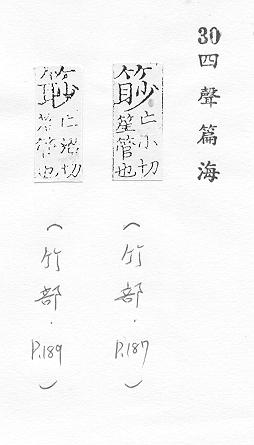 30四聲篇海
篎亡小切
笙管也
(竹部.P.187)
亡沼切
管也
(竹部.P.189)